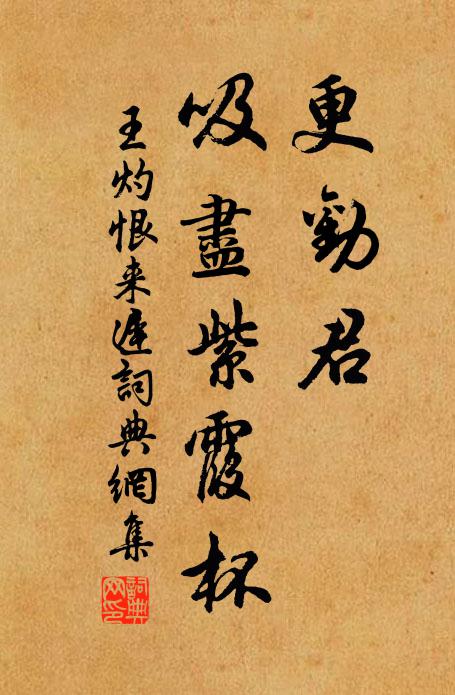 更勸君
吸盡紫霞杯
王灼恨来遲詞典網集
詞典網印